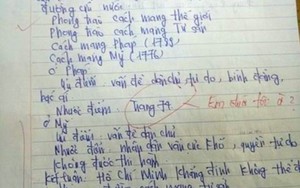 đường cứ nước
Phong trào cách mạng thế giới
Phong trào cách mạng Tư sản
Cách mạng Pháp (1789)
Cách mạng Mỹ (1776)
Ở Pháp
Ưu điểm: vấn đề dân chủ tự do, bình đẳng,
bác ái
Nhược điểm: Trang 74
Em nhớ tốc à ?
Ở Mỹ
Ưu điểm: vấn đề dân chủ
Nhược điểm nhân dân vẫn cực khổ, quyền tự do
không được thi hành
Kết luận: Hồ Chí Minh khẳng định không thể
cách mạng